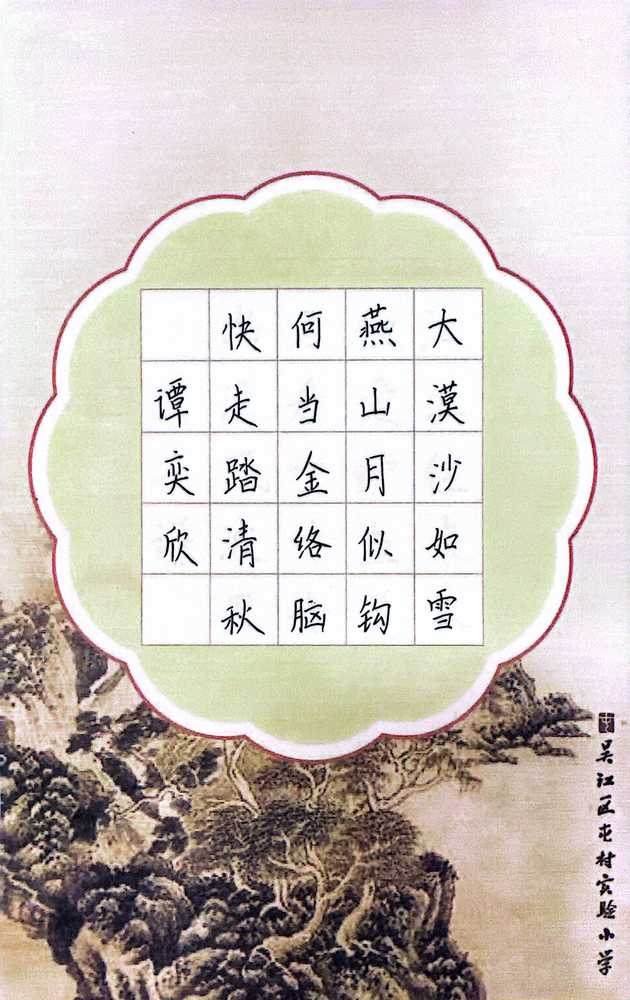 大漠沙如雪
燕山月似钩
何当金络脑
快走踏清秋
谭奕欣
吴江区屯村实验小学